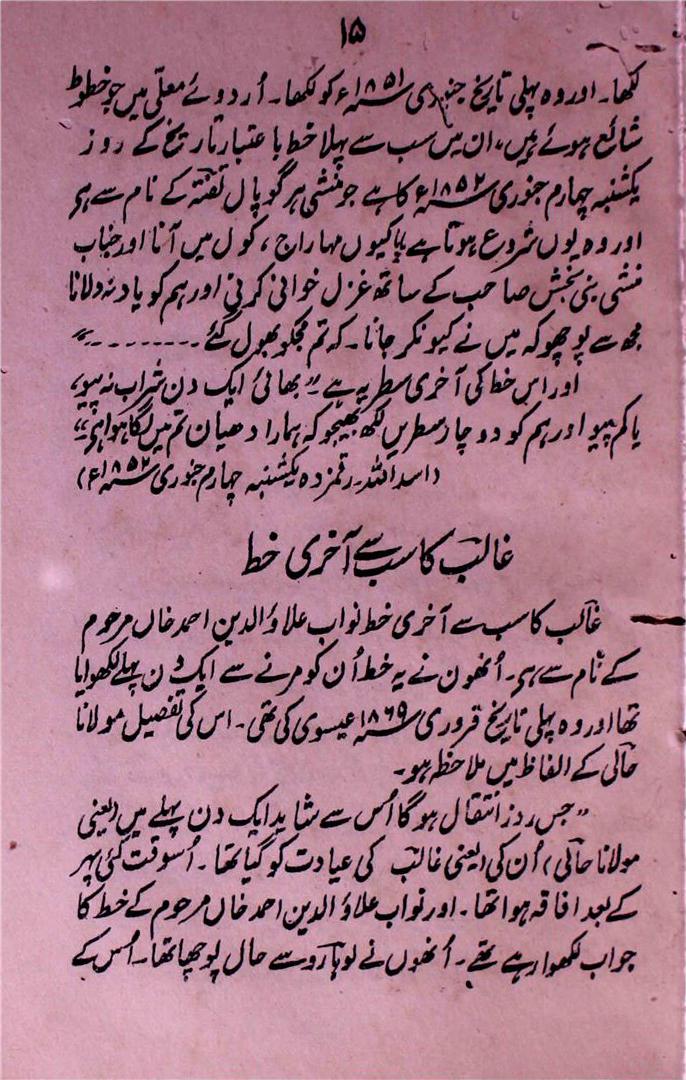 ۱۵
لکھا۔ اور وہ پہلی تاریخ جنوری ۱۸۵۱ء کو لکھا۔ اُردوئے معلّی میں جو خطوط
شائع ہوئے ہیں، ان میں سب سے پہلا خط با عتبار تاریخ کے روز
یکشنبہ چہارم جنوری ۱۸۵۲ء کا ہے جو منشی ہر گوپال تفتہ کے نام سے ہی
اور وہ یوں شروع ہوتا ہے "کیوں مہاراج، کول میں آنا اور جناب
منشی نبی بخش صاحب کے ساتھ غزل خوانی کرنی اور ہم کو یاد نہ دلانا
مجھ سے پوچھو کہ میں نے کیونکر جانا۔ کہ تم مجکو بھول گئے۔--------"
اور اس خط کی آخری سطر یہ ہے۔ "بھائی ایک دن شراب نہ پیو،
یا کم پیو اور ہم کو دو چار سطریں لکھ بھیجو کہ ہمارا دھیان تم میں لگا ہوا ہی"
(اسد اللہ۔ رقمزدہ یکشنبہ چہارم جنوری ۱۸۵۲ء)
غالبؔ کا سب سے آخری خط
غالبؔ کا سب سے آخری خط نواب علاؤ الدین احمد خاں مرحوم
کے نام سے ہی۔ اُنھون نے یہ خط اُن کو مرنے سے ایک دن پہلے لکھوایا
تھا اور وہ پہلی تاریخ فروری ۱۸۶۹ عیسوی کی تھی۔ اس کی تفصیل مولانا
حالیؔ کے الفاظ میں ملاحظہ ہو۔
"جس روز انتقال ہو گا اُس سے شاید ایک دن پہلے میں (یعنی
مولانا حالیؔ) اُن کی (یعنی غالبؔ کی عیادت کو گیا تھا۔ اُسوقت کئی پہر
کے بعد افاقہ ہوا تھا۔ اور نواب علاؤ الدین احمد خاں مرحوم کے خط کا
جواب لکھوا رہے تھے۔ اُنھوں نے لوہارو سے حال پوچھا تھا۔ اُس کے